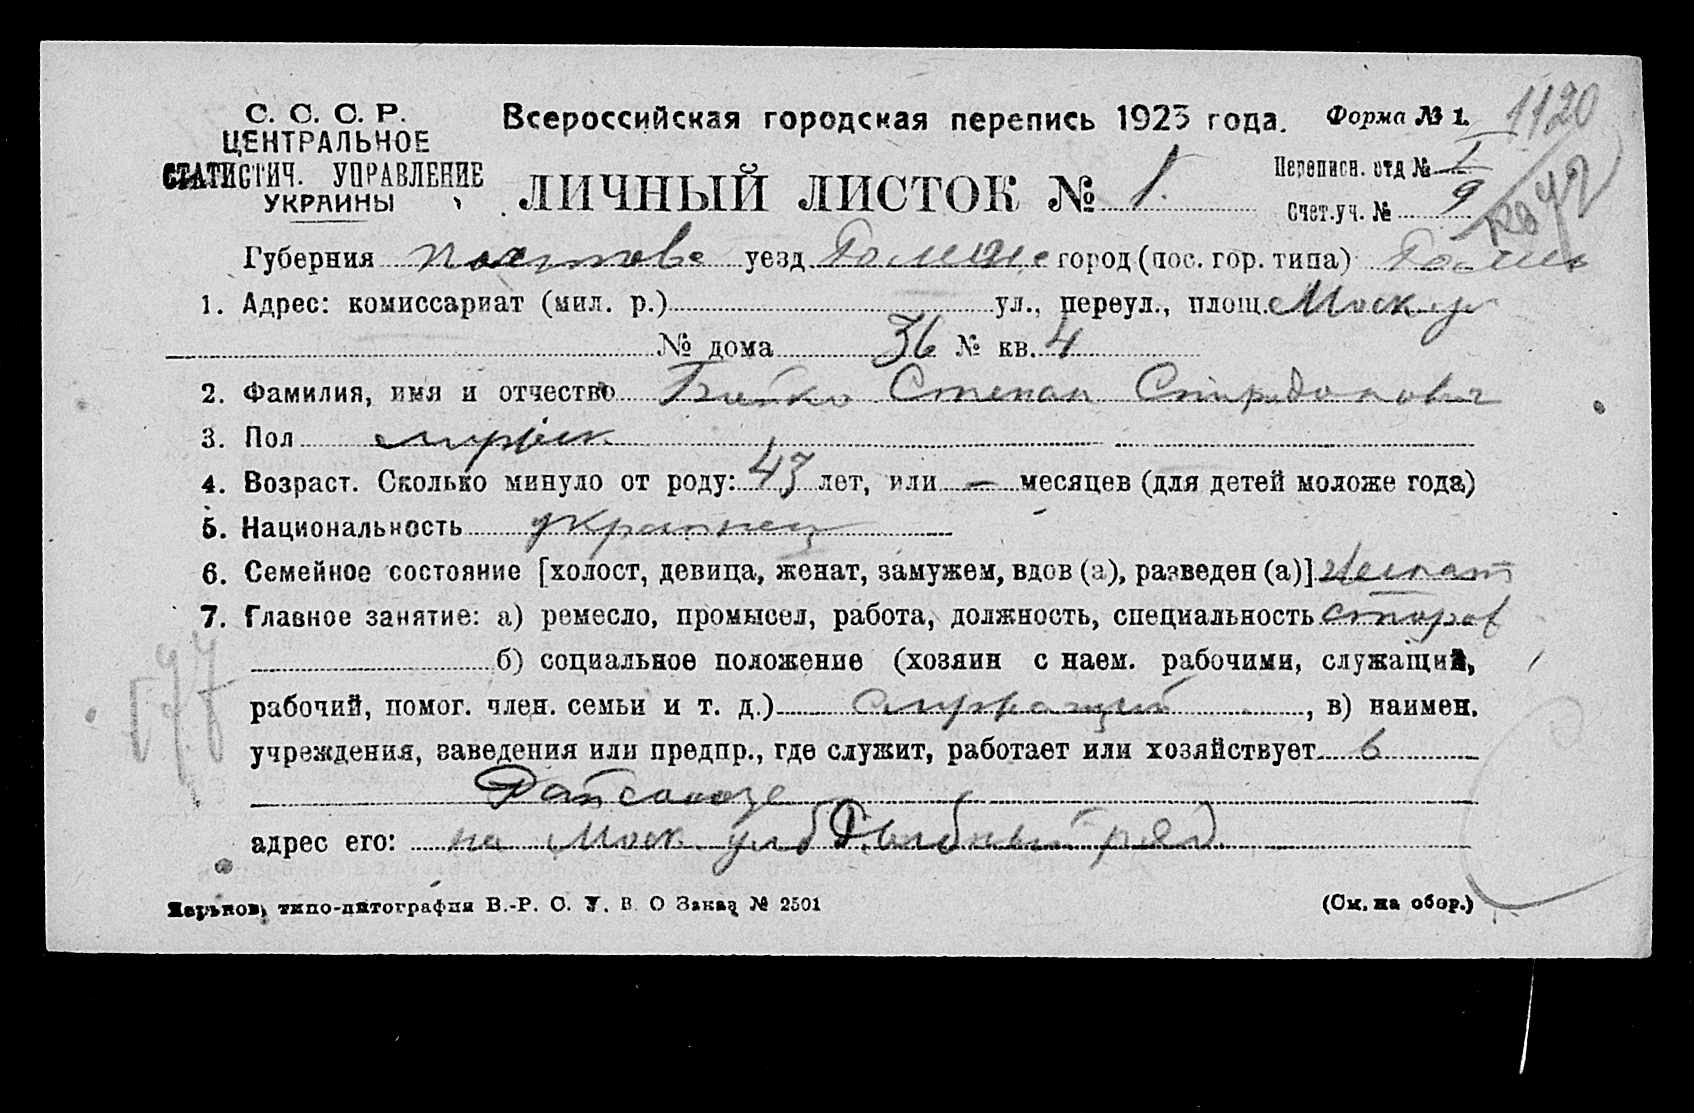 С. С. С. Р.
ЦЕНТРАЛЬНОЕ
СТАТИСТИЧ. УПРАВЛЕНИЕ
УКРАИНЫ
Всероссийская городская перепись 1923 года.
Форма № 1.
1120
ЛИЧНЫЙ ЛИСТОК № 1.
Переписн. отд № I
Счет.уч. № 9
Губерния уезд город (пос. гор. типа)
1. Адрес: комиссариат (мил. р.) ул., переул., площ. Моск ул
№ дома 36 № кв. 4
2. Фамилия, имя и отчество Степан Спиридонович
3. Пол мужск
4. Возраст. Сколько минуло от роду: 43 лет, или — месяцев (для детей моложе года)
5. Национальность украинец
6. Семейное состояние [холост, девица, женат, замужем, вдов (а), разведен (а)] женат
7. Главное занятие: а) ремесло, промысел, работа, должность, специальность сторож
б) социальное положение (хозяин с наем. рабочими, служащий,
рабочий, помог. член. семьи и т. д.) служащий, в) наимен.
учреждения, заведения или предпр., где служит, работает или хозяйствует в
Райсоюзе
адрес его: на Моск. ул Рыбный ряд.
Харьков, типо-литография В.-Р. С. У. В. О Заказ № 2501
(См. на обор.)